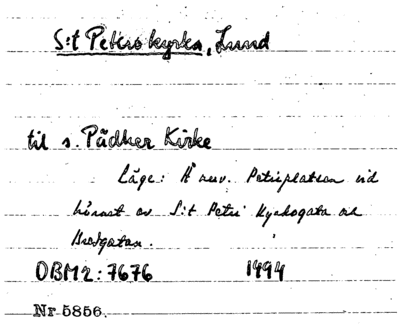 S:t Petri kyrka, Lund
til s. Pädher Kirke
Läge: Å nuv. Petriplatsen vid
hörnet av S:t Petri Kyrkogata och
Bredgatan.
OBM 2:7676 1494
Nr 5856.